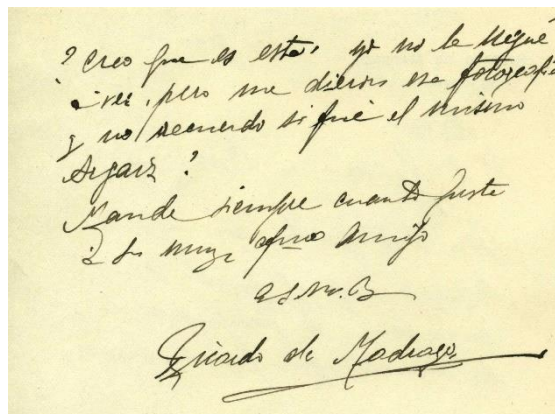 ? Creo que es esta, yo no le llegué
a ver, pero me dieron esa fotografia
y no recuerdo si fué el mismo
?
Mande siempre cuanto guste
à su muy afmo amigo
q s m. B
Ricardo de Madrazo